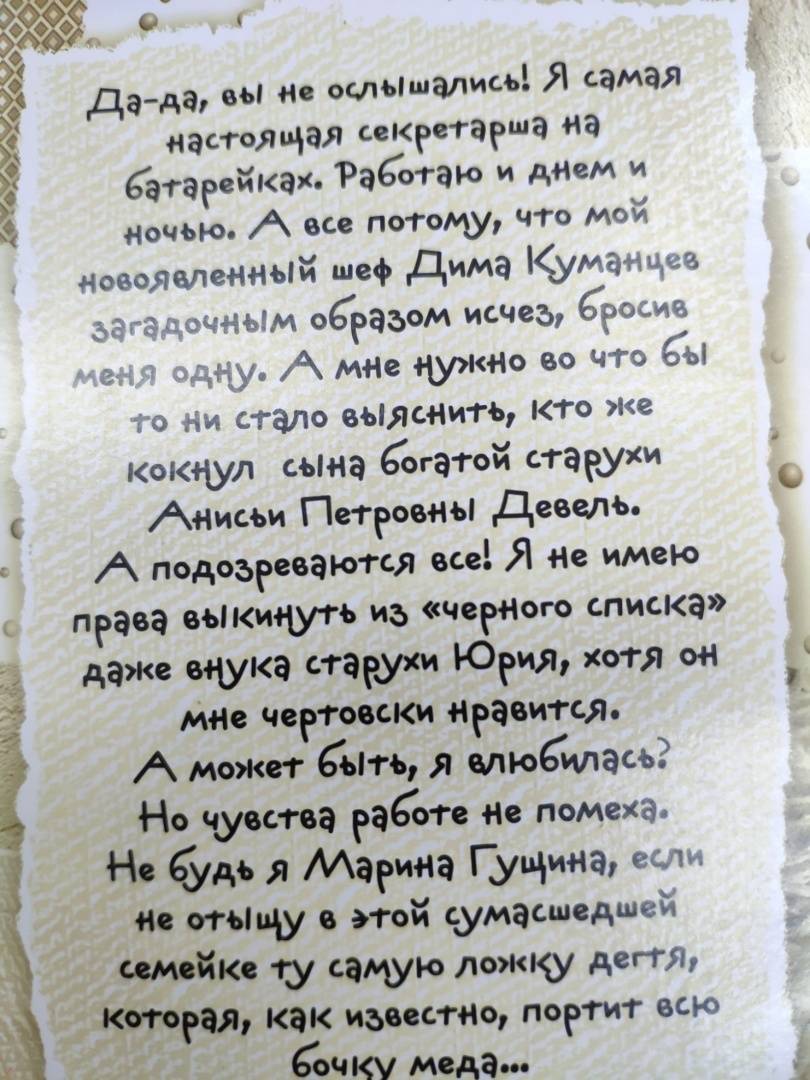 Да-да, вы не ослышались! Я самая
настоящая секретарша на
батарейках. Работаю и днем и
ночью. А все потому, что мой
новоявленный шеф Дима Куманцев
загадочным образом исчез, бросив
меня одну. А мне нужно во что бы
то ни стало выяснить, кто же
кокнул сына богатой старухи
Анисьи Петровны Девель.
А подозреваются все! Я не имею
права выкинуть из «черного списка»
даже внука старухи Юрия, хотя он
мне чертовски нравится.
А может быть, я влюбилась?
Но чувства работе не помеха.
Не будь я Марина Гущина, если
не отыщу в этой сумасшедшей
семейке ту самую ложку дегтя,
которая, как известно, портит всю
бочку меда...